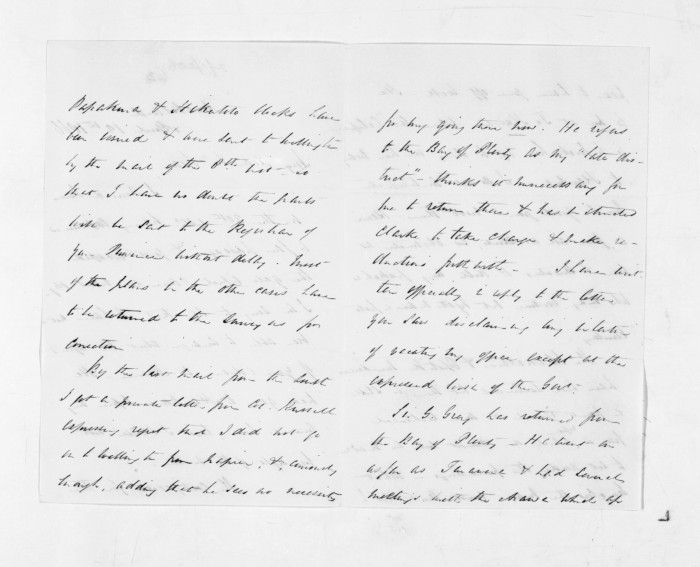 Papakura & Hikutoto blocks have
been issued & were sent to Wellington
by the mail of the 8th inst – so
that I have no doubt the grants
will be sent to the Registrar of
your Province without delay. Most
of the plans in the other cases have
to be returned to the Surveyors for
correction.
By the last mail from the South
I got a private letter from Col. Russell
expressing regret that I did not go
on to Wellington from Napier, & curiously
enough, adding that he sees no necessity
for my going there now. He refers
to the Bay of Plenty as my "late dis-
trict" – thinks it unnecessary for
me to return there & has instructed
Clarke to take charge & make re-
ductions forthwith – I have writ-
ten officially in reply to the letter
you saw disclaiming any intention
of vacating my office except at the
expressed wish of the Govt.
Sir G Grey has returned from
the Bay of Plenty – He went on
as far as & had several
meetings with the which